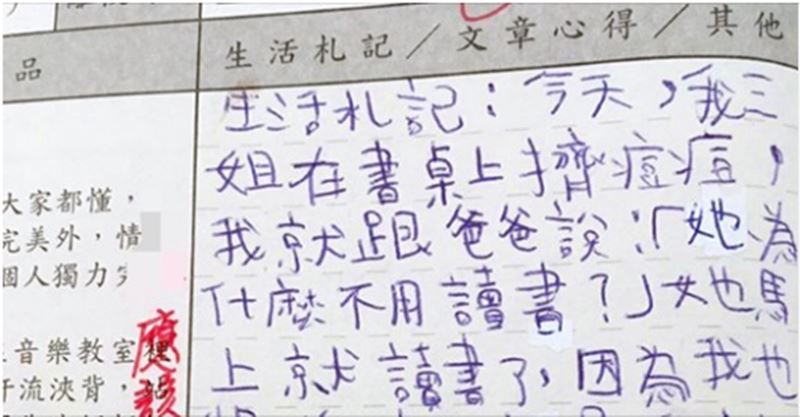 品
生活札記／文章心得／其他
生活札記：今天，我三
姐在書桌上擠痘痘，
我就跟爸爸說：「她為
什麼不用讀書？」她馬
上就讀書了，因為我也
大家都懂，
完美外，情
個人獨力完
音樂教室裡
汗流浹背，
應該